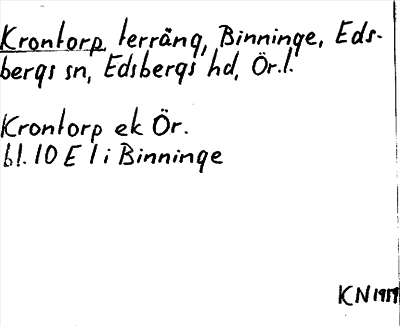 Krontorp, terräng, Binninge, Eds-
bergs sn, Edsbergs hd, Ör.l.
Krontorp ek Ör.
bl. 10 E 1 i Binninge
KN